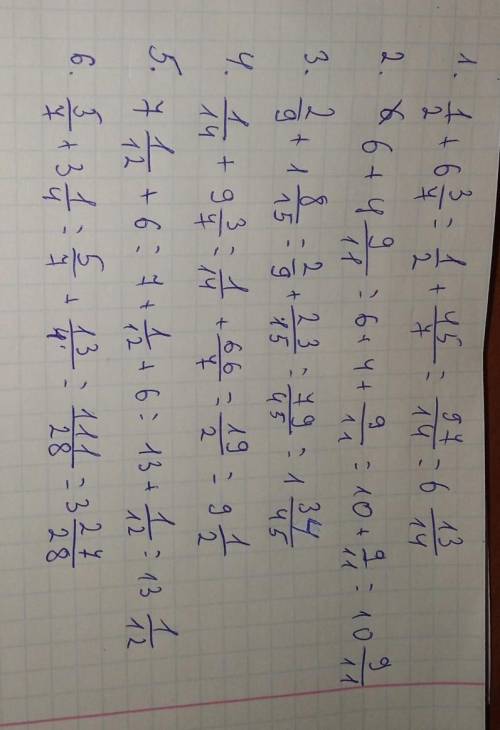 1. 1/2 + 6 3/7 = 1/2 + 45/7 = 97/14 = 6 13/14
2. 6 + 4 9/11 = 6 + 4 + 9/11 = 10 + 9/11 = 10 9/11
3. 2/9 + 1 8/15 = 2/9 + 23/15 = 79/45 = 1 34/45
4. 1/14 + 9 3/7 = 1/14 + 66/7 = 19/2 = 9 1/2
5. 7 1/12 + 6 = 7 + 1/12 + 6 = 13 + 1/12 = 13 1/12
6. 5/7 + 3 1/4 = 5/7 + 13/4 = 111/28 = 3 27/28